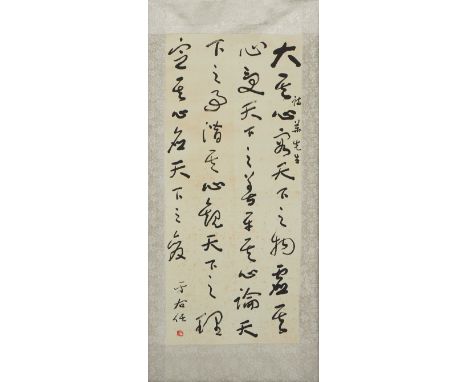 大其心容天下之物虛其
先生
心受天下之善平其心論天
下之事潛其心觀天下之理
定其心應天下之變
于右任